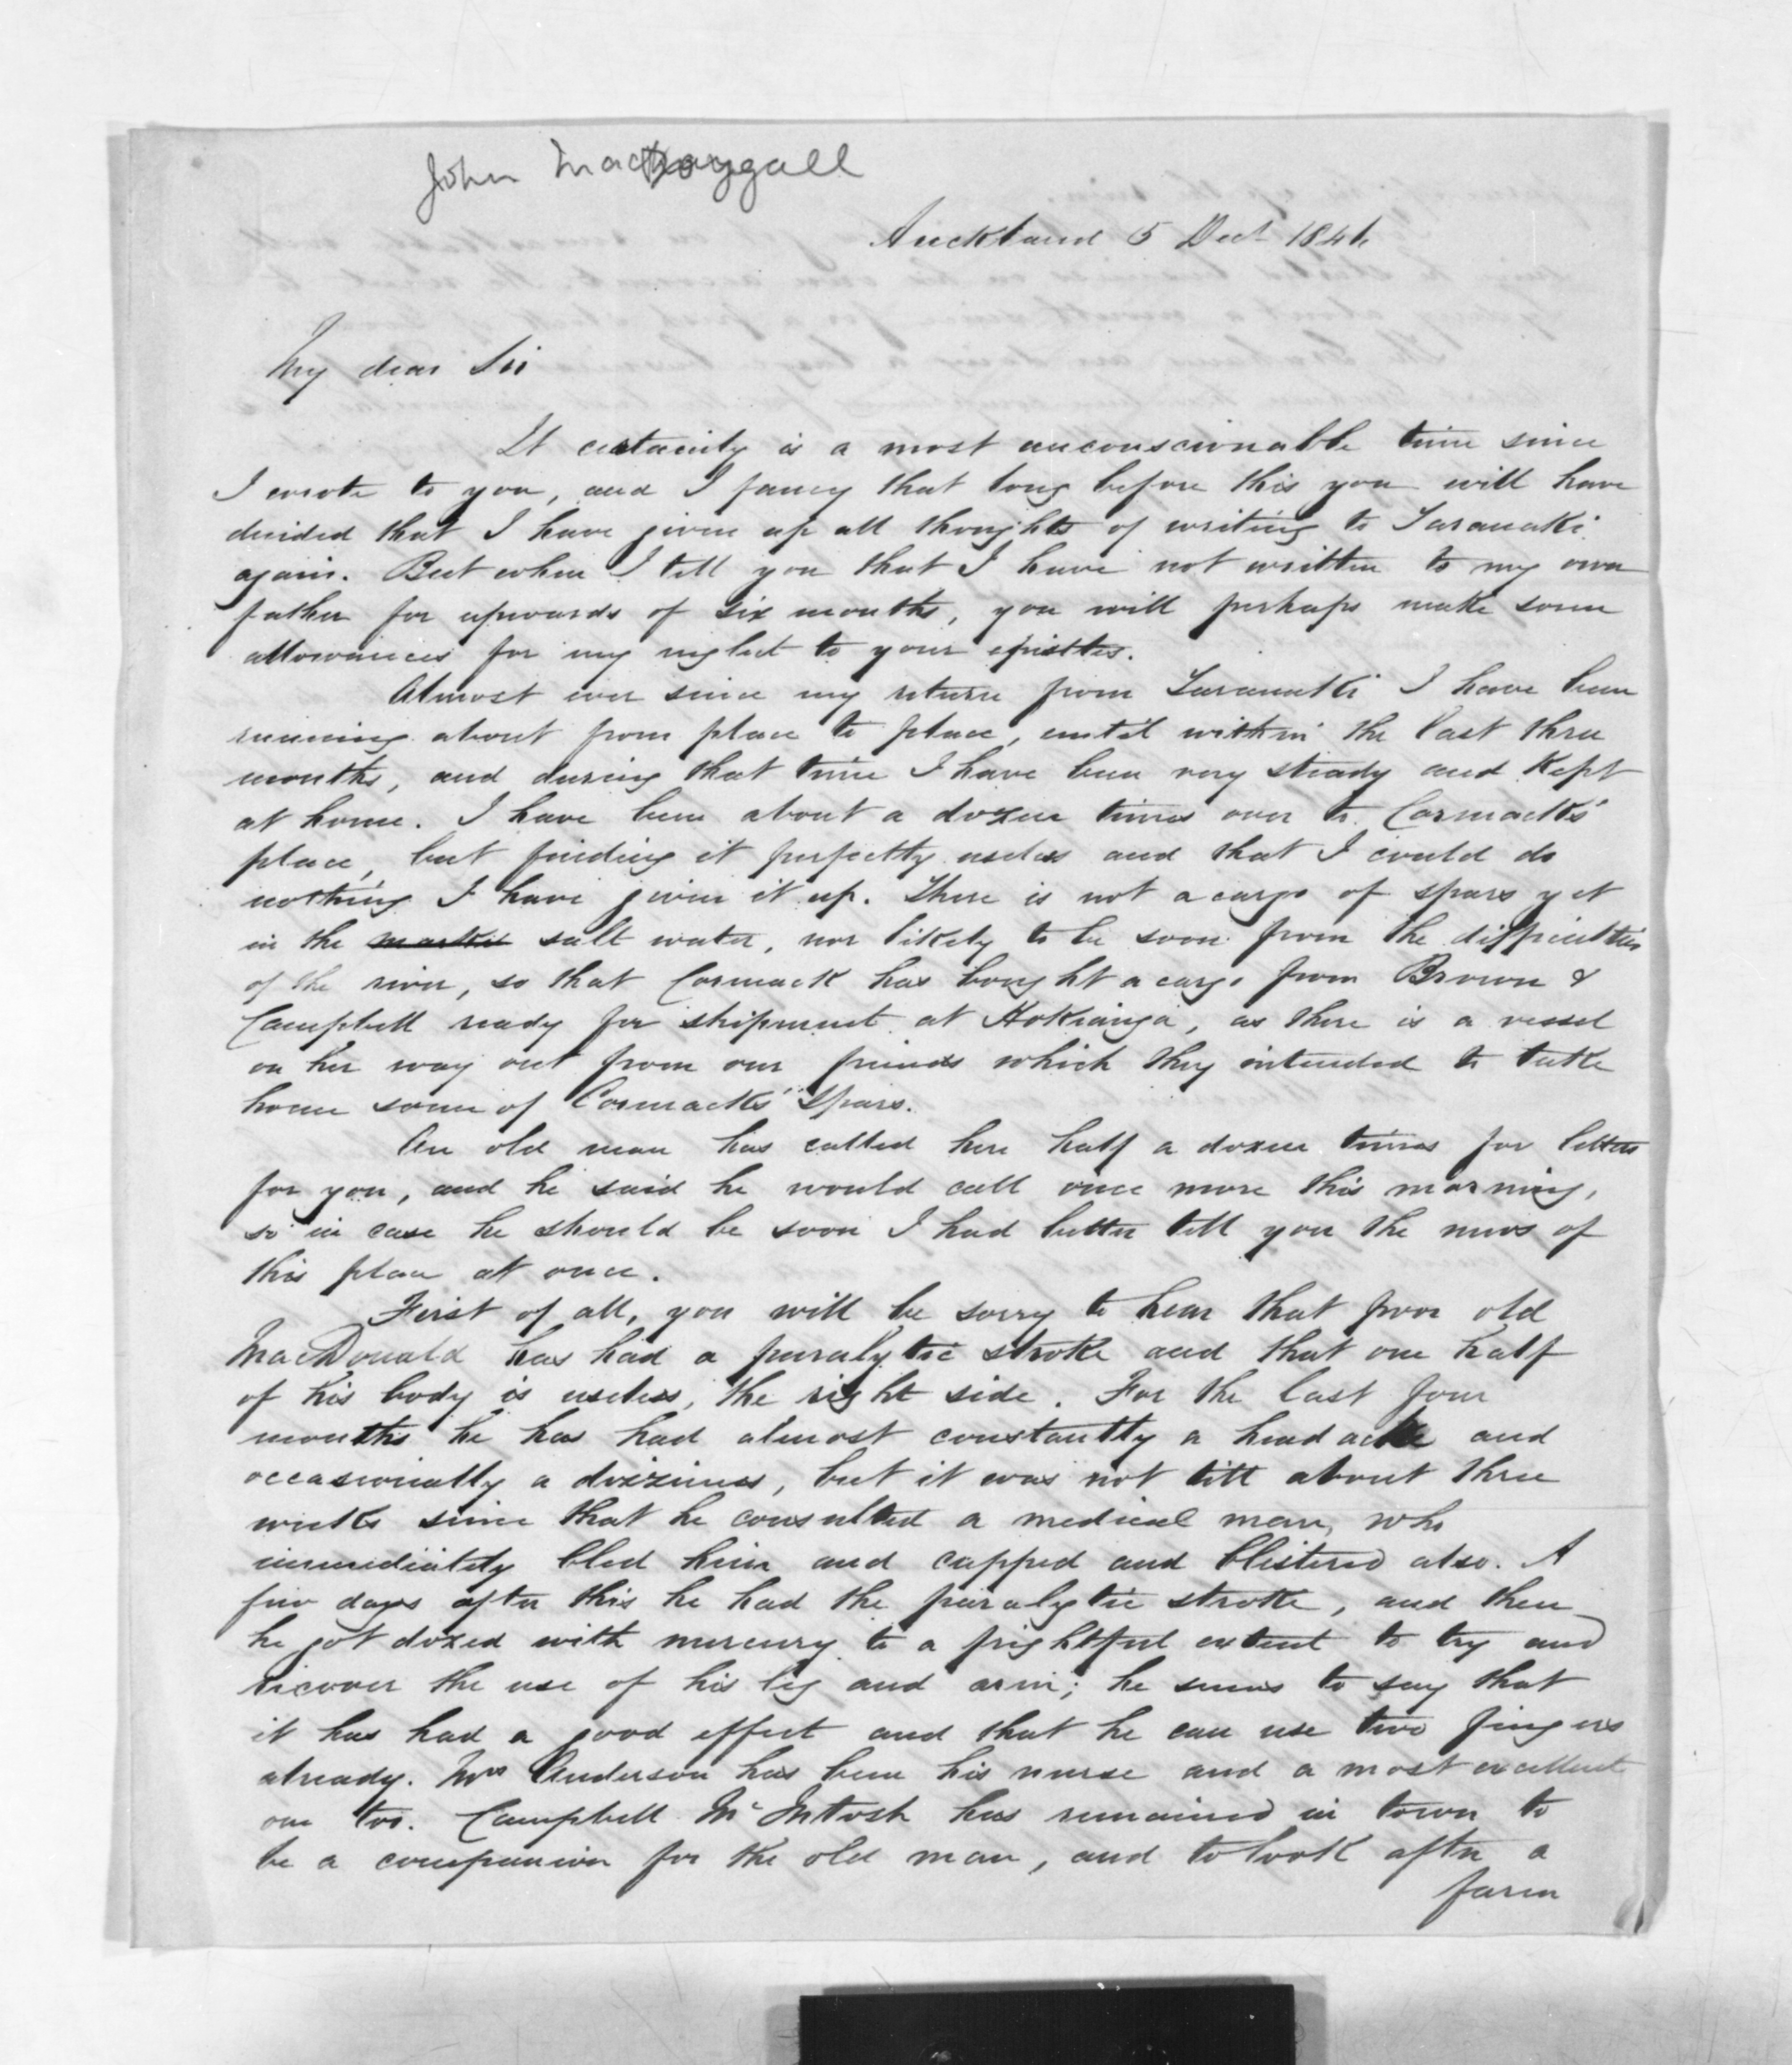 John MacDougall
Auckland 5 Decr 1846
My dear Sir
It certainly is a most unconscionable time since
I wrote to you, and I fancy that long before this you will have
decided that I have given up all thoughts of writing to Taranaki
again. But when I tell you that I have not written to my own
father for upwards of six months, you will perhaps make some
allowances for my neglect to your epistles.
Almost ever since my return from Taranaki I have been
running about from place to place, until within the last three
months, and during that time I have been very steady and kept
at home. I have been about a dozen times over to Cormack's
place, but finding it perfectly useless and that I could do
nothing I have given it up. There is not a cargo of spars yet
in the market salt water, nor likely to be soon from the difficulties
of the river, so that Cormack has bought a cargo from Brown &
Campbell ready for shipment at Hokianga, as there is a vessel
on her way out from our friends which they intended to take
home some of Cormacks' Spars.
An old man has called here half a dozen times for letters
for you, and he said he would call once more this morning,
so in case he should be soon I had better tell you the news of
this place at once.
First of all, you will be sorry to hear that poor old
MacDonald has had a paralytic stroke and that one half
of his body is useless, the right side. For the last four
months he has had almost constantly a head ache and
occasionally a dizziness, but it was not till about three
weeks since that he consulted a medical man, who
immediately bled him and cupped and blistered also. A
few days after this he had the paralytic stroke, and then
he got dozed with mercury to a frightful extent to try and
recover the use of his leg and arm; he seems to say that
it has had a good effect and that he can use two fingers
already. Mrs Anderson has been his nurse and a most excellent
one too. Campbell McIntosh has remained in town to
be a companion for the old man, and to look after a
farm